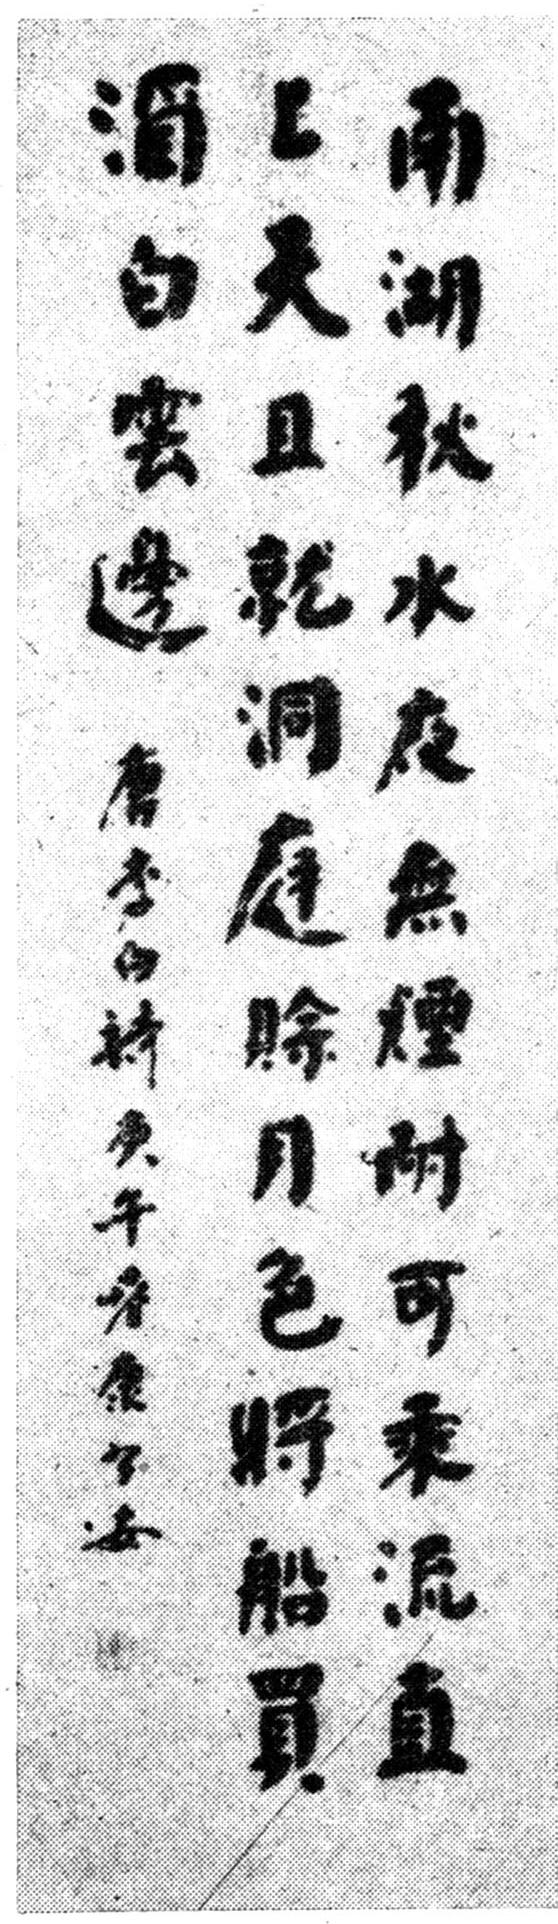 南湖秋水夜無煙耐可乘流直
上天且就洞庭賒月色將船買
酒白雲邊 唐李白詩庚午春康